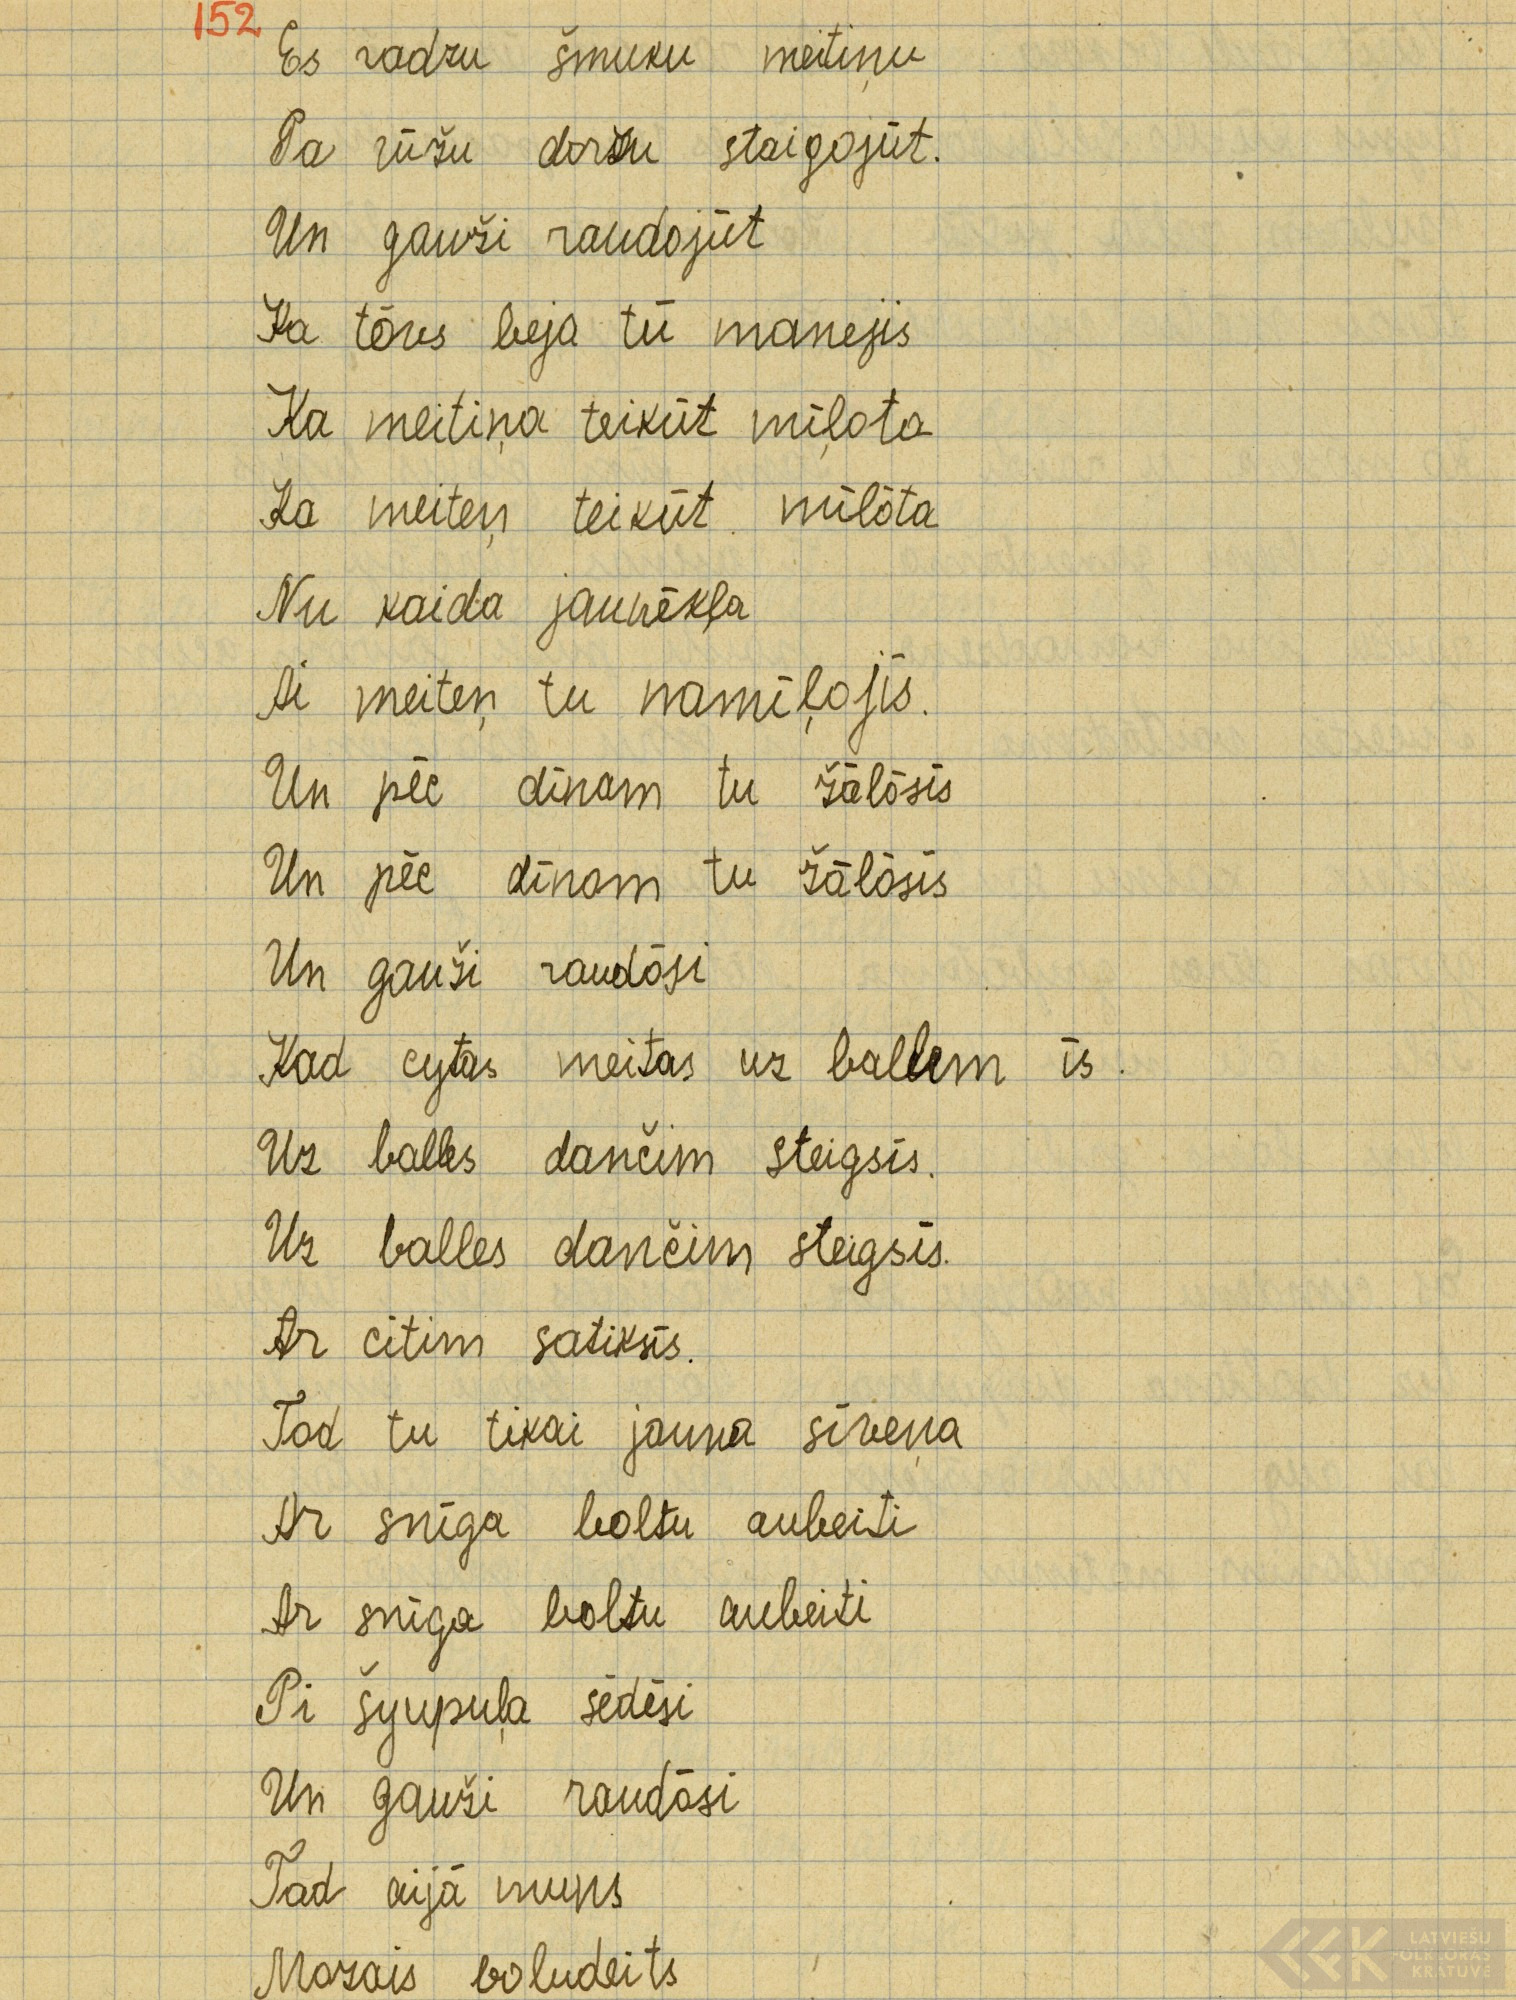 152
Es radzu šmuku meitiņu
Pa rūžu dorzu staigojūt.
Un gauži raudojūt
Ka tōvs beja tū manejis
Ka meitiņa teikūt mīļota
Ka meiteņ teikūt mīlōta
Nu kaida jaunēkļa
Ai meiteņ tu namīļojīs.
Un pēc dīnom tu žālōsīs
Un pēc dīnom tu žālōsīs
Un gauži raudōsi
Kad cytas meitas uz ballem īs.
Uz balles dančim steigsīs.
Uz balles dančim steigsīs.
Ar citim satiksīs.
Tod tu tikai jauna sīveņa
Ar snīga boltu aubeiti
Ar snīga boltu aubeiti
Pi šyupuļa sēdēsi
Un gauži raudōsi
Tad aijā muns
Mozais boludeits
LATVIEŠU
FOLKLORAS
KRĀTUVE